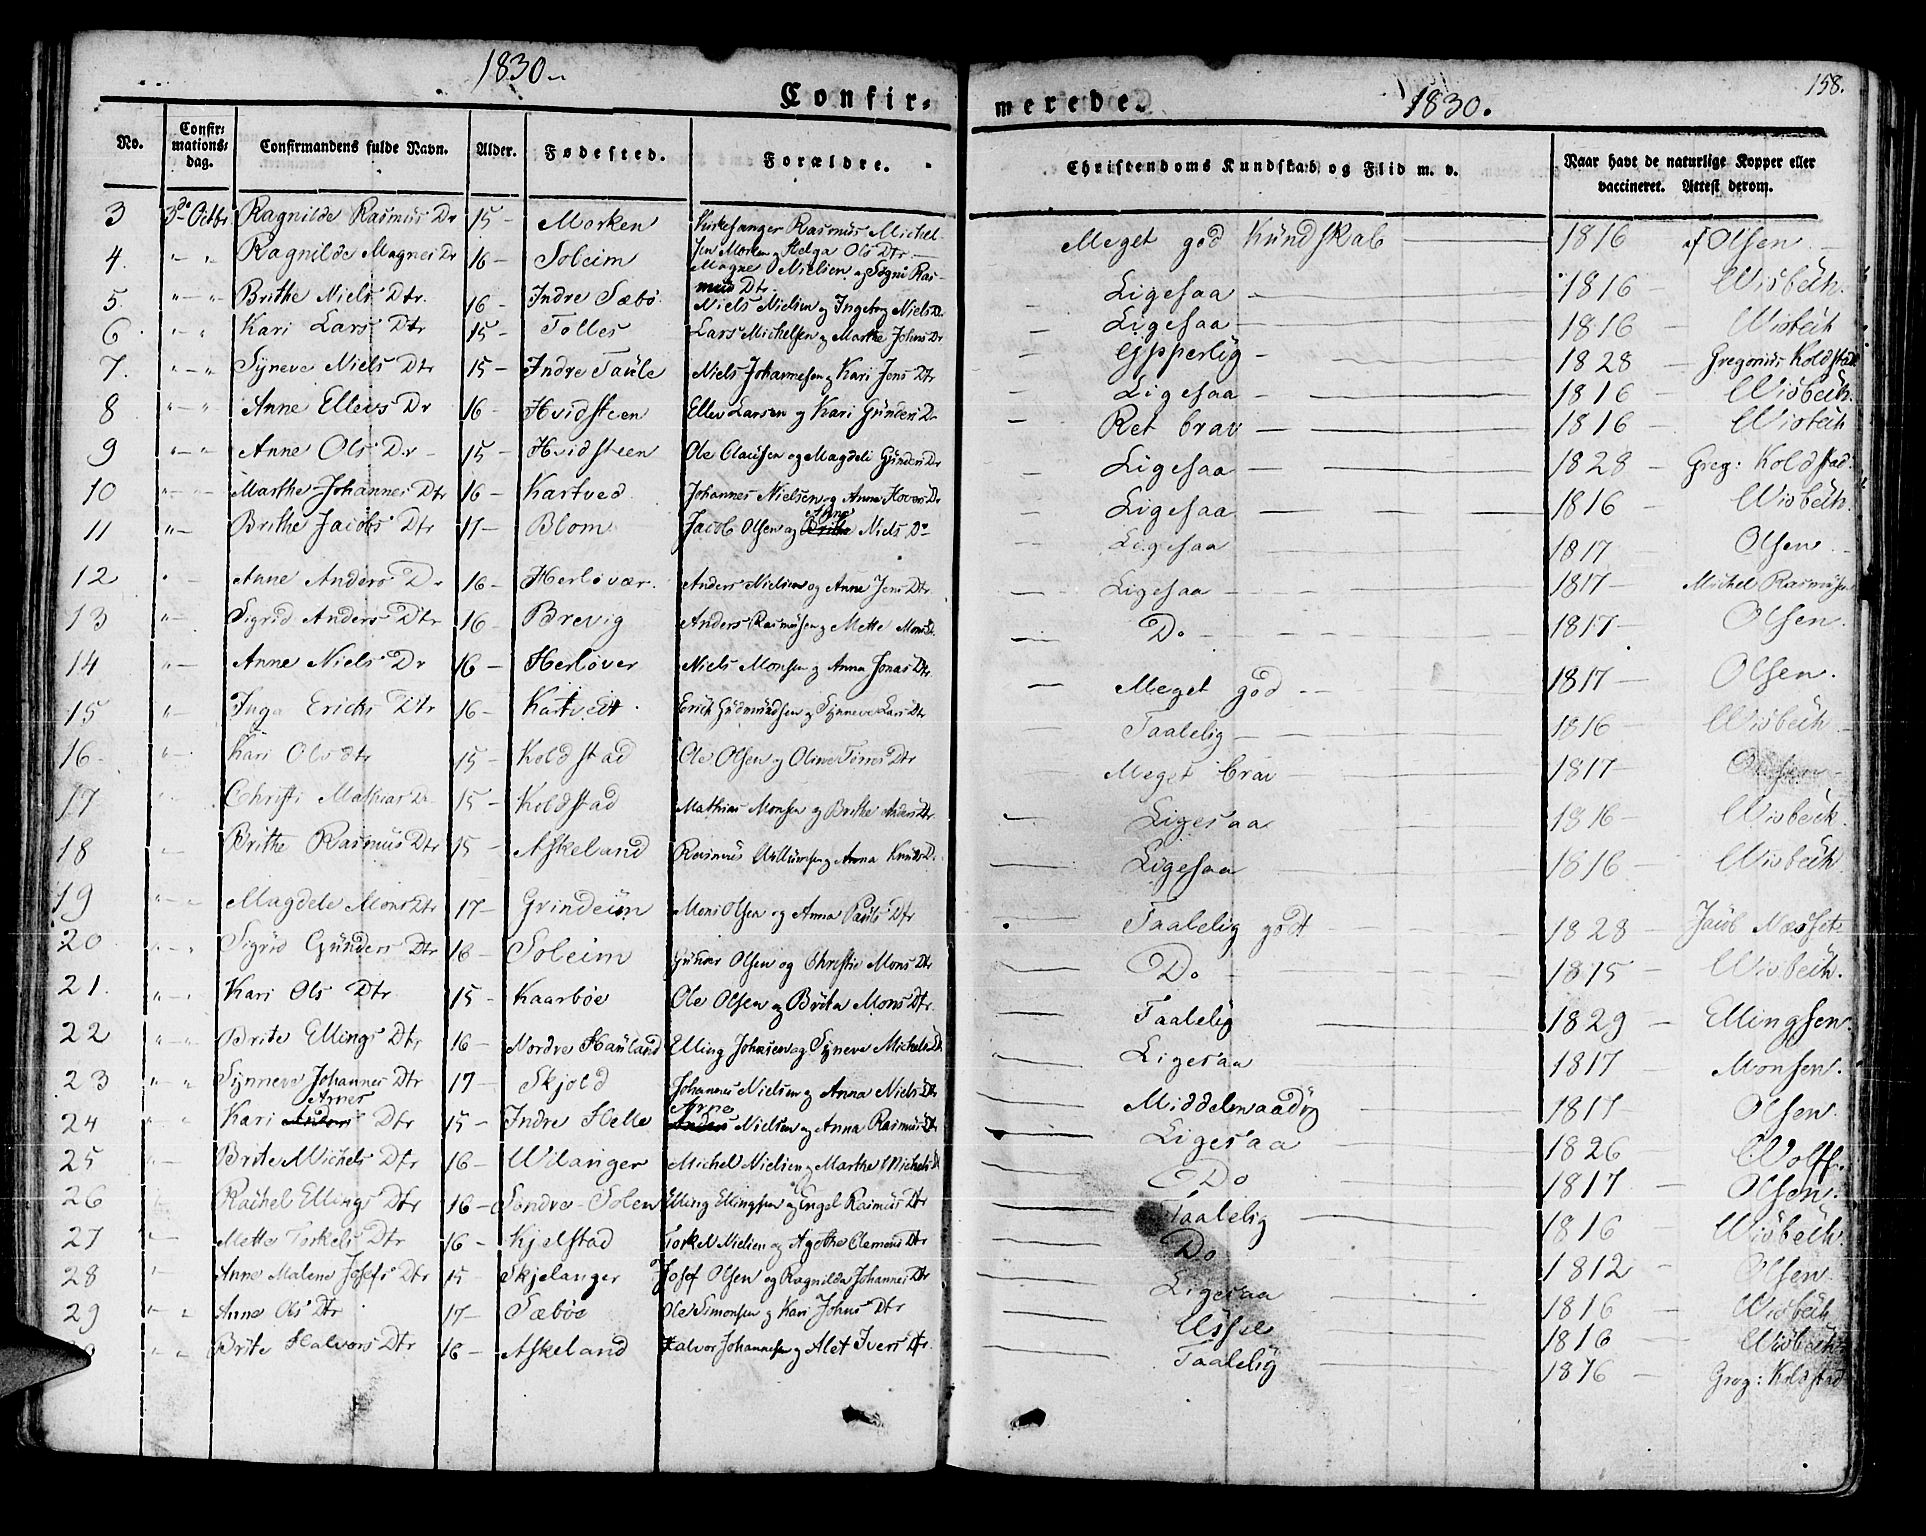 1830
Confir-
merede.
1830.
158.
No.
Confir-
mations-
dag.
Confirmandens fulde Navn.
Alder.
Fødested.
Forældre.
Christendoms Kundskab og Flid m. v.
Naar havt de naturlige Kopper eller
vaccineret. Attest derom.
3 3de Octbr Ragnilde Rasmus Dr 15 - Morken Kirkesanger Rasmus Michel-
sen Morken og Helga Ols Dtr Meget god Kundskab 1816 af Olsen
4. " " Ragnilde Magnes Dr 16 - Soleim Magne Nielsen og Sogni Ras-
mus Dtr. Ligesaa - 1816 - Wisbech.
5. " " Brithe Niels Dtr. 16 - Indre Sæbø Niels Nielsen og Ingeborg Niels D. Ligesaa - 1816 - Wisbech
6. " " Kari Lars Dtr 15 - Tolles Lars Michelsen og Marthe Johns Dr - Ypperlig - 1828 - Gregorius Koldstad
7. " " Syneve Niels Dtr 15 - Indre Taule Niels Johannesen og Kari Jens Dtr - Ligesaa 1816 - Wisbech.
8 " " Anne Ellevs Dr 16 - Hvidsteen Ellev Larsen og Kari Gunders D. - Ret brav - 1816 - Wisbech
9 " " Anne Ols Dr - 15 - Hvidsteen Ole Clausen og Magdeli Gunders Dr - Ligesaa - 1828 - Greg: Koldstad.
10 " " Marthe Johannes Dtr 16 - Kartved Johannes Nielsen og Anne Hovers Dr - Ligesaa 1816 - Wisbech.
11 " " Brithe Jacobs Dtr 17 - Blom Jacob Olsen og Brithe Anne Niels Dr - Ligesaa 1817 Olsen
12 " - Anne Anders D. 16 - Herløvær. Anders Nielsen og Anne Jens Dtr - Ligesaa 1817 - Michel Rasmusen
13 " - Sigrid Anders Dtr 16 - Brevig Anders Rasmusen og Mette Mons D. - Do - 1817 - Olsen.
14 " - Anne Niels Dr 16 - Herløver Niels Monsen og Anna Jonas Dtr - Meget god 1817 - Olsen.
15 " - Inga Erichs Dtr 16 - Kartvedt Erich Gudmundsen og Synneve Lars Dtr Taalelig - 1816 - Wisbech
16 " - Kari Ols dtr 15 - Koldstad Ole Olsen og Oline Tørres Dtr Meget brav - 1817 - Olsen
17 Christi Mathias D. 15 - Koldstad Mathias Monsen og Brithe Anders Dtr - Ligesaa 1816 - Wisbech.
18 - Brithe Rasmus Dtr 15 - Askeland Rasmus Willumsen og Anna Knuds D. - Ligesaa 1816 - Wisbech
19 " " Magdele Mons Dtr 17 - Grindeim Mons Olsen og Anna Pauls Dtr Taalelig godt 1828 - Jacob Næsset
20 " " Sigrid Gunders Dtr 16 - Soleim Gunder Olsen og Christie Mons Dtr - Do 1815 - Wisbech.
21. " " Kari Ols Dtr 15 - Kaarbøe Ole Olsen og Brita Mons Dtr - Taalelig 1829 - Ellingsen.
22 " " Brite Ellings Dtr 16 - Nordre Hauland Elling Johnsen og Syneve Michels Dtr - Ligesaa 1817 Monsen.
23 " " Synneve Johannes Dtr 17 - Skjold Johannes Nielsen og Anna Niels Dtr - Middelmaadig 1817 Olsen.
24 " " Kari Anders Arnes Dtr 15 - Indre Helle Anders Arne Nielsen og Anna Rasmus Dtr - Ligesaa 1826 - Wolff.
25 " Brite Michels Dtr 16 - Wilanger Michel Nielsen og Marthe Michels Dt - Do 1817 - Olsen.
26 " Rachel Ellings Dtr 16 - Søndre Solen Elling Ellingsen og Engel Rasmus Dtr - Taalelig 1816 Wisbech.
27 " Mette Torkels Dtr 16 - Kjelstad Torkel Nielsen og Agothe Clemens Dtr - Do 1812 - Olsen
28 " Anne Malene Josefs Dtr 15 - Skjelanger Josef Olsen og Ragnilda Johannes Dtr - Ligesaa 1816 - Wisbech
29 " " Anne Ols Dtr 17 - Sæbøe Ole Simonsen og Kari Johns Dtr - Ussel 1816 - Wisbech
" " Brite Halvors Dtr 16 - Askeland Halvor Johannesen og Alet Ivers Dtr - Taalelig 1816 - Greg: Koldstad